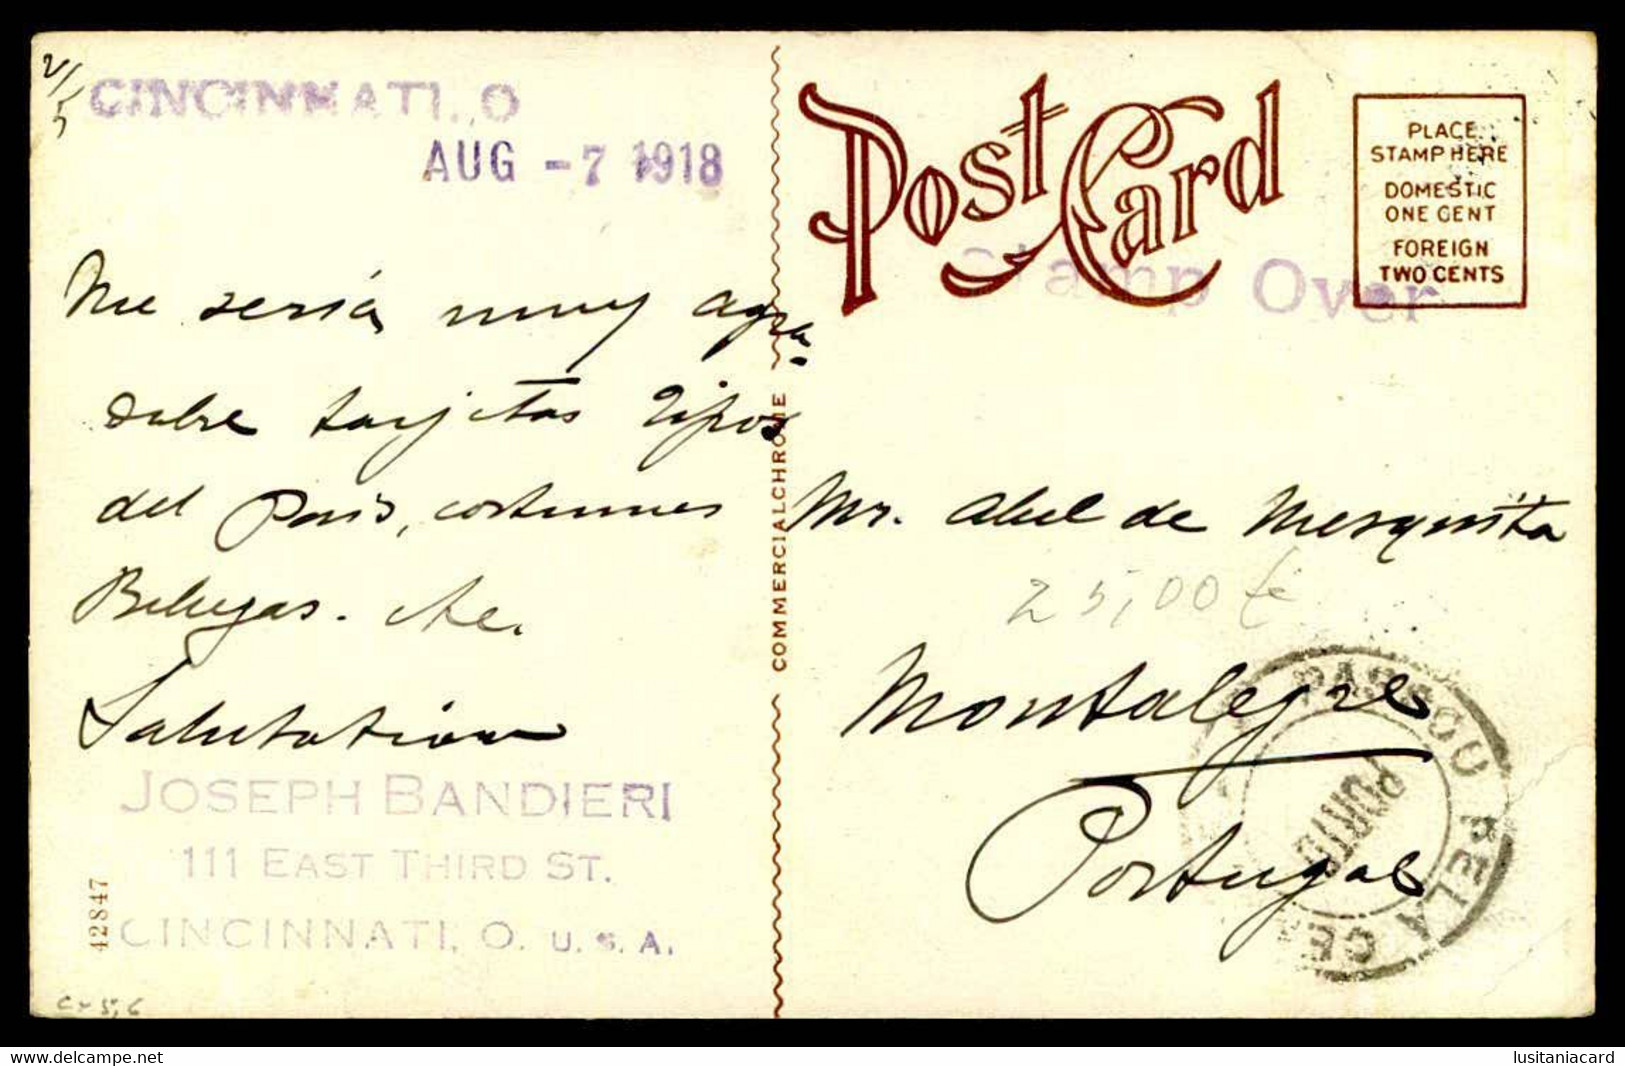 2/5
CINCINNATI., O
AUG - 7 1918
Me sería muy agra-
dabre tarjetas tipos
del País, costumes
Salutation
JOSEPH BANDIERI
111 EAST THIRD ST.
CINCINNATI, O. U. S. A.
42847
COMMERCIALCHROME
Post Card
PLACE
STAMP HERE
DOMESTIC
ONE CENT
FOREIGN
TWO CENTS
Stamp Over
Mr. Abel de Mesquita
25,00 €
Montalegre
Portugal
PASSOU PELA CE
PORTO
www.delcampe.net
lusitaniacard